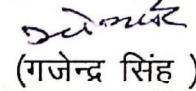 (गजेन्द्र सिंह )